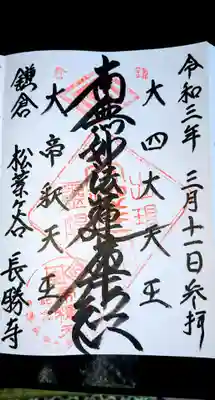 令和三年 三月十一日参拝
大四大天王
南無妙法蓮華経
大帝釈天王
鎌倉 松葉ヶ谷 長勝寺